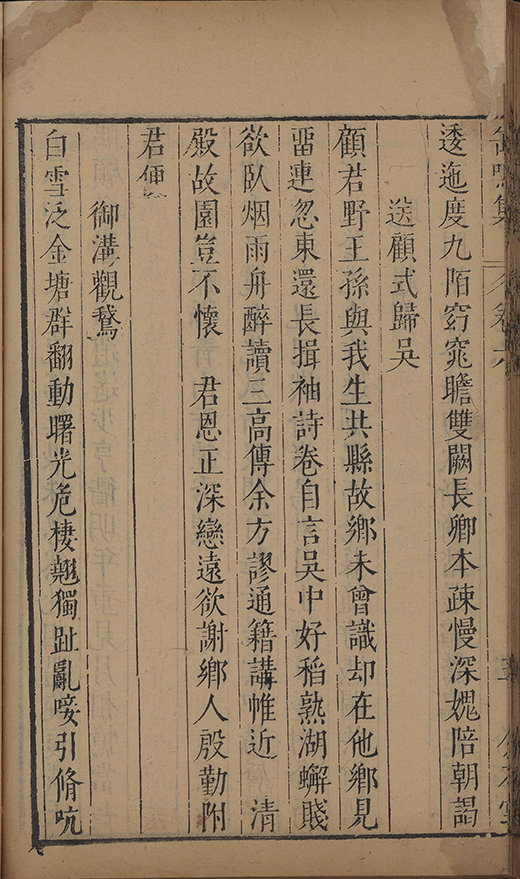 逶迤度九陌窈窕瞻雙闕長卿本疎慢深媿陪朝謁
送顧式歸吳
顧君野王孫與我生共縣故鄉未曾識却在他鄉見
畱連忽東還長揖袖詩卷自言吳中好稻熟湖蠏賤
欲臥烟雨舟醉讀三高傳余方謬通籍講帷近 清
殿故園豈不懷 君恩正深戀遠欲謝鄉人殷勤附
君便
御溝觀鵞
白雪泛金塘群翻動曙光危棲翹獨趾亂唼引脩吭